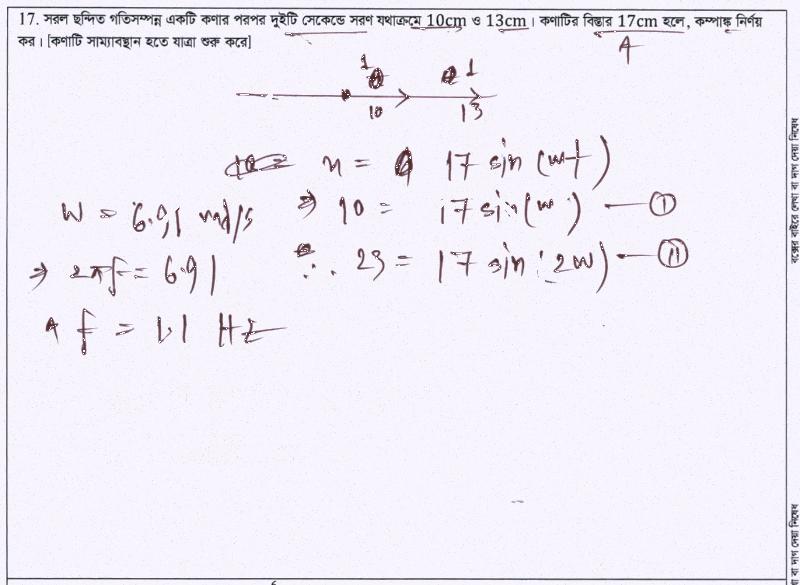 17. সরল ছন্দিত গতিসম্পন্ন একটি কণার পরপর দুইটি সেকেন্ডে সরণ যথাক্রমে 10cm ও 13cm। কণাটির বিস্তার 17cm হলে, কম্পাঙ্ক নির্ণয়
কর। [কণাটি সাম্যাবস্থান হতে যাত্রা শুরু করে]
A
1 1
10 13
x = 17 sin (wt)
W = 6.91 rad/s ⇒ 10 = 17 sin (w) — (I)
⇒ 2πf = 6.91 ∴ 23 = 17 sin (2w) — (II)
f = 1.1 Hz
বক্সের বাইরে লেখা বা দাগ দেয়া নিষেধ
বা দাগ দেয়া নিষেধ